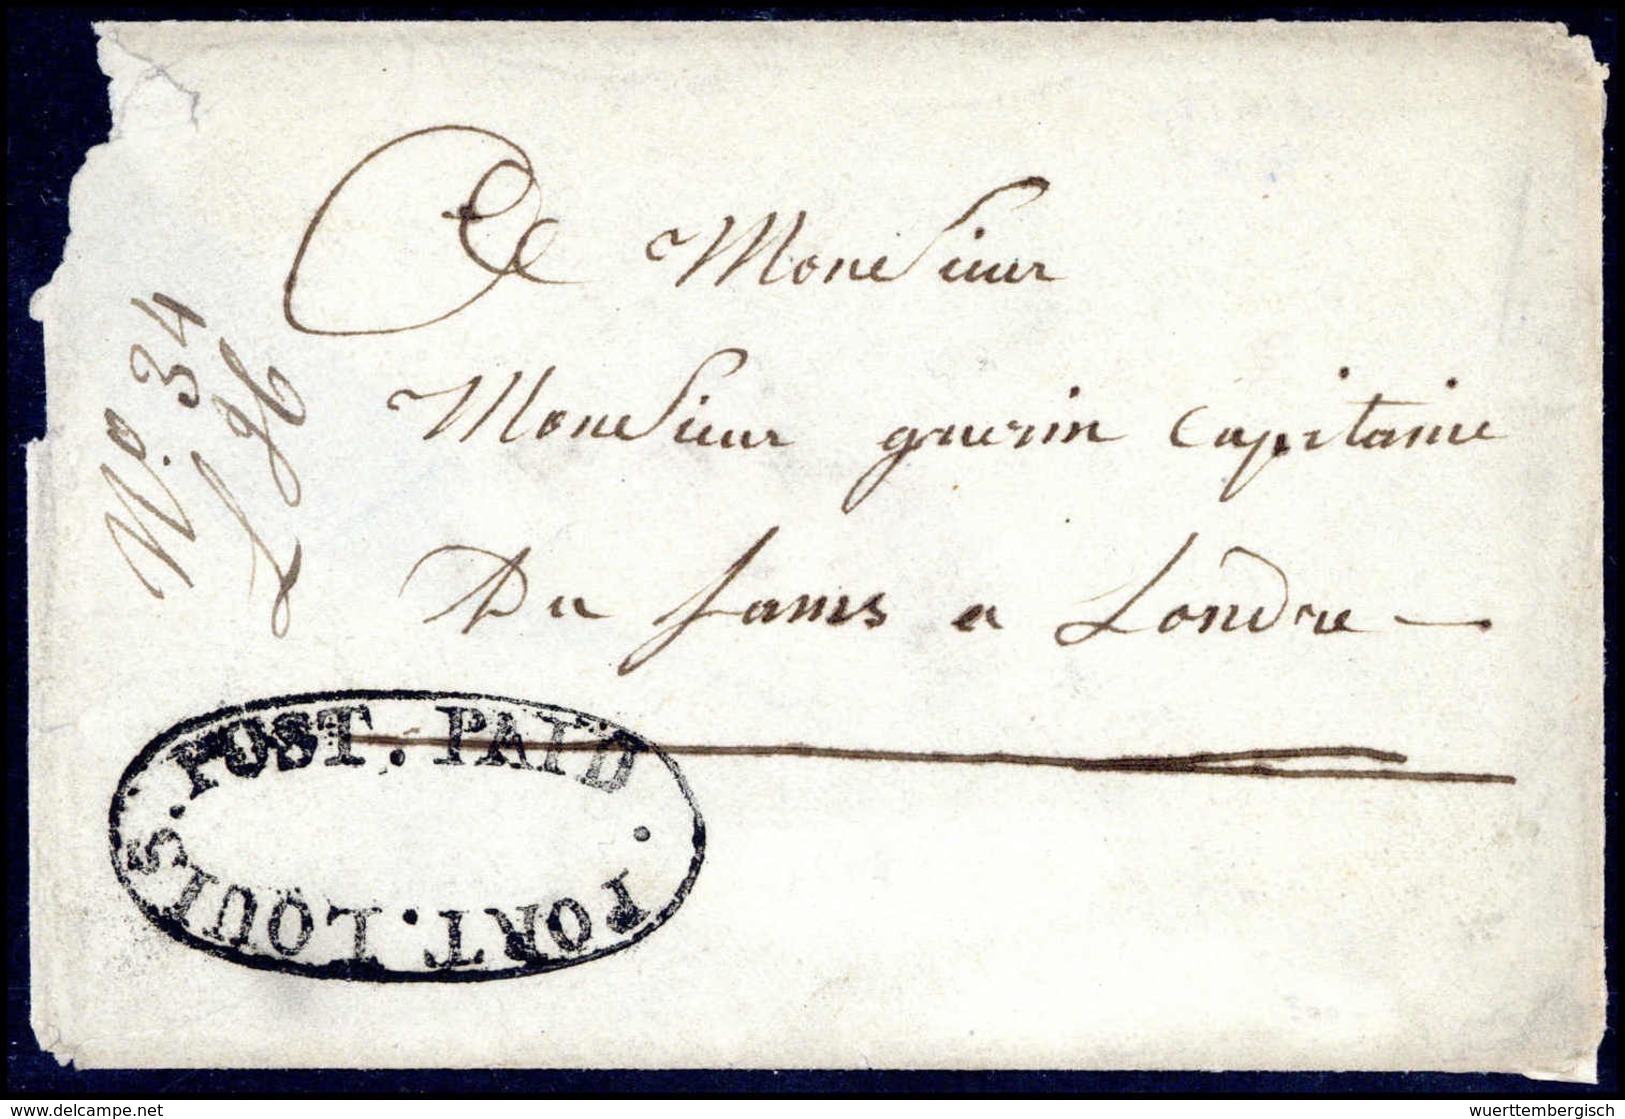 A Monsieur
Monsieur guerin Capitaine
Du fams a Londre
No. 34
POST. PAID. PORT. LOUIS.
delcampe.net
wuerttembergisch